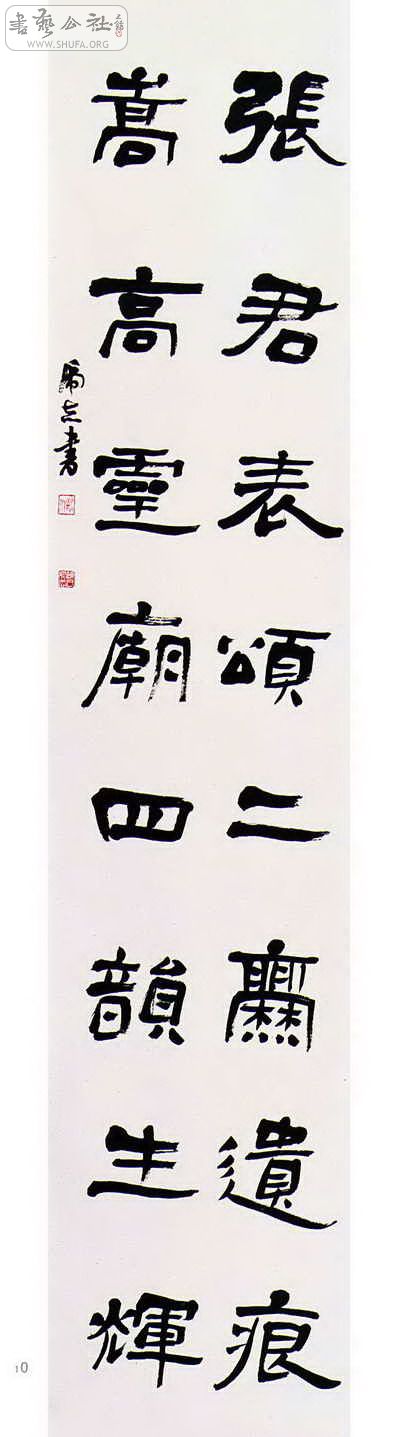 書藝公社
WWW.SHUFA.ORG
張君表頌二爨遺痕
嵩高靈廟四韻生輝
10